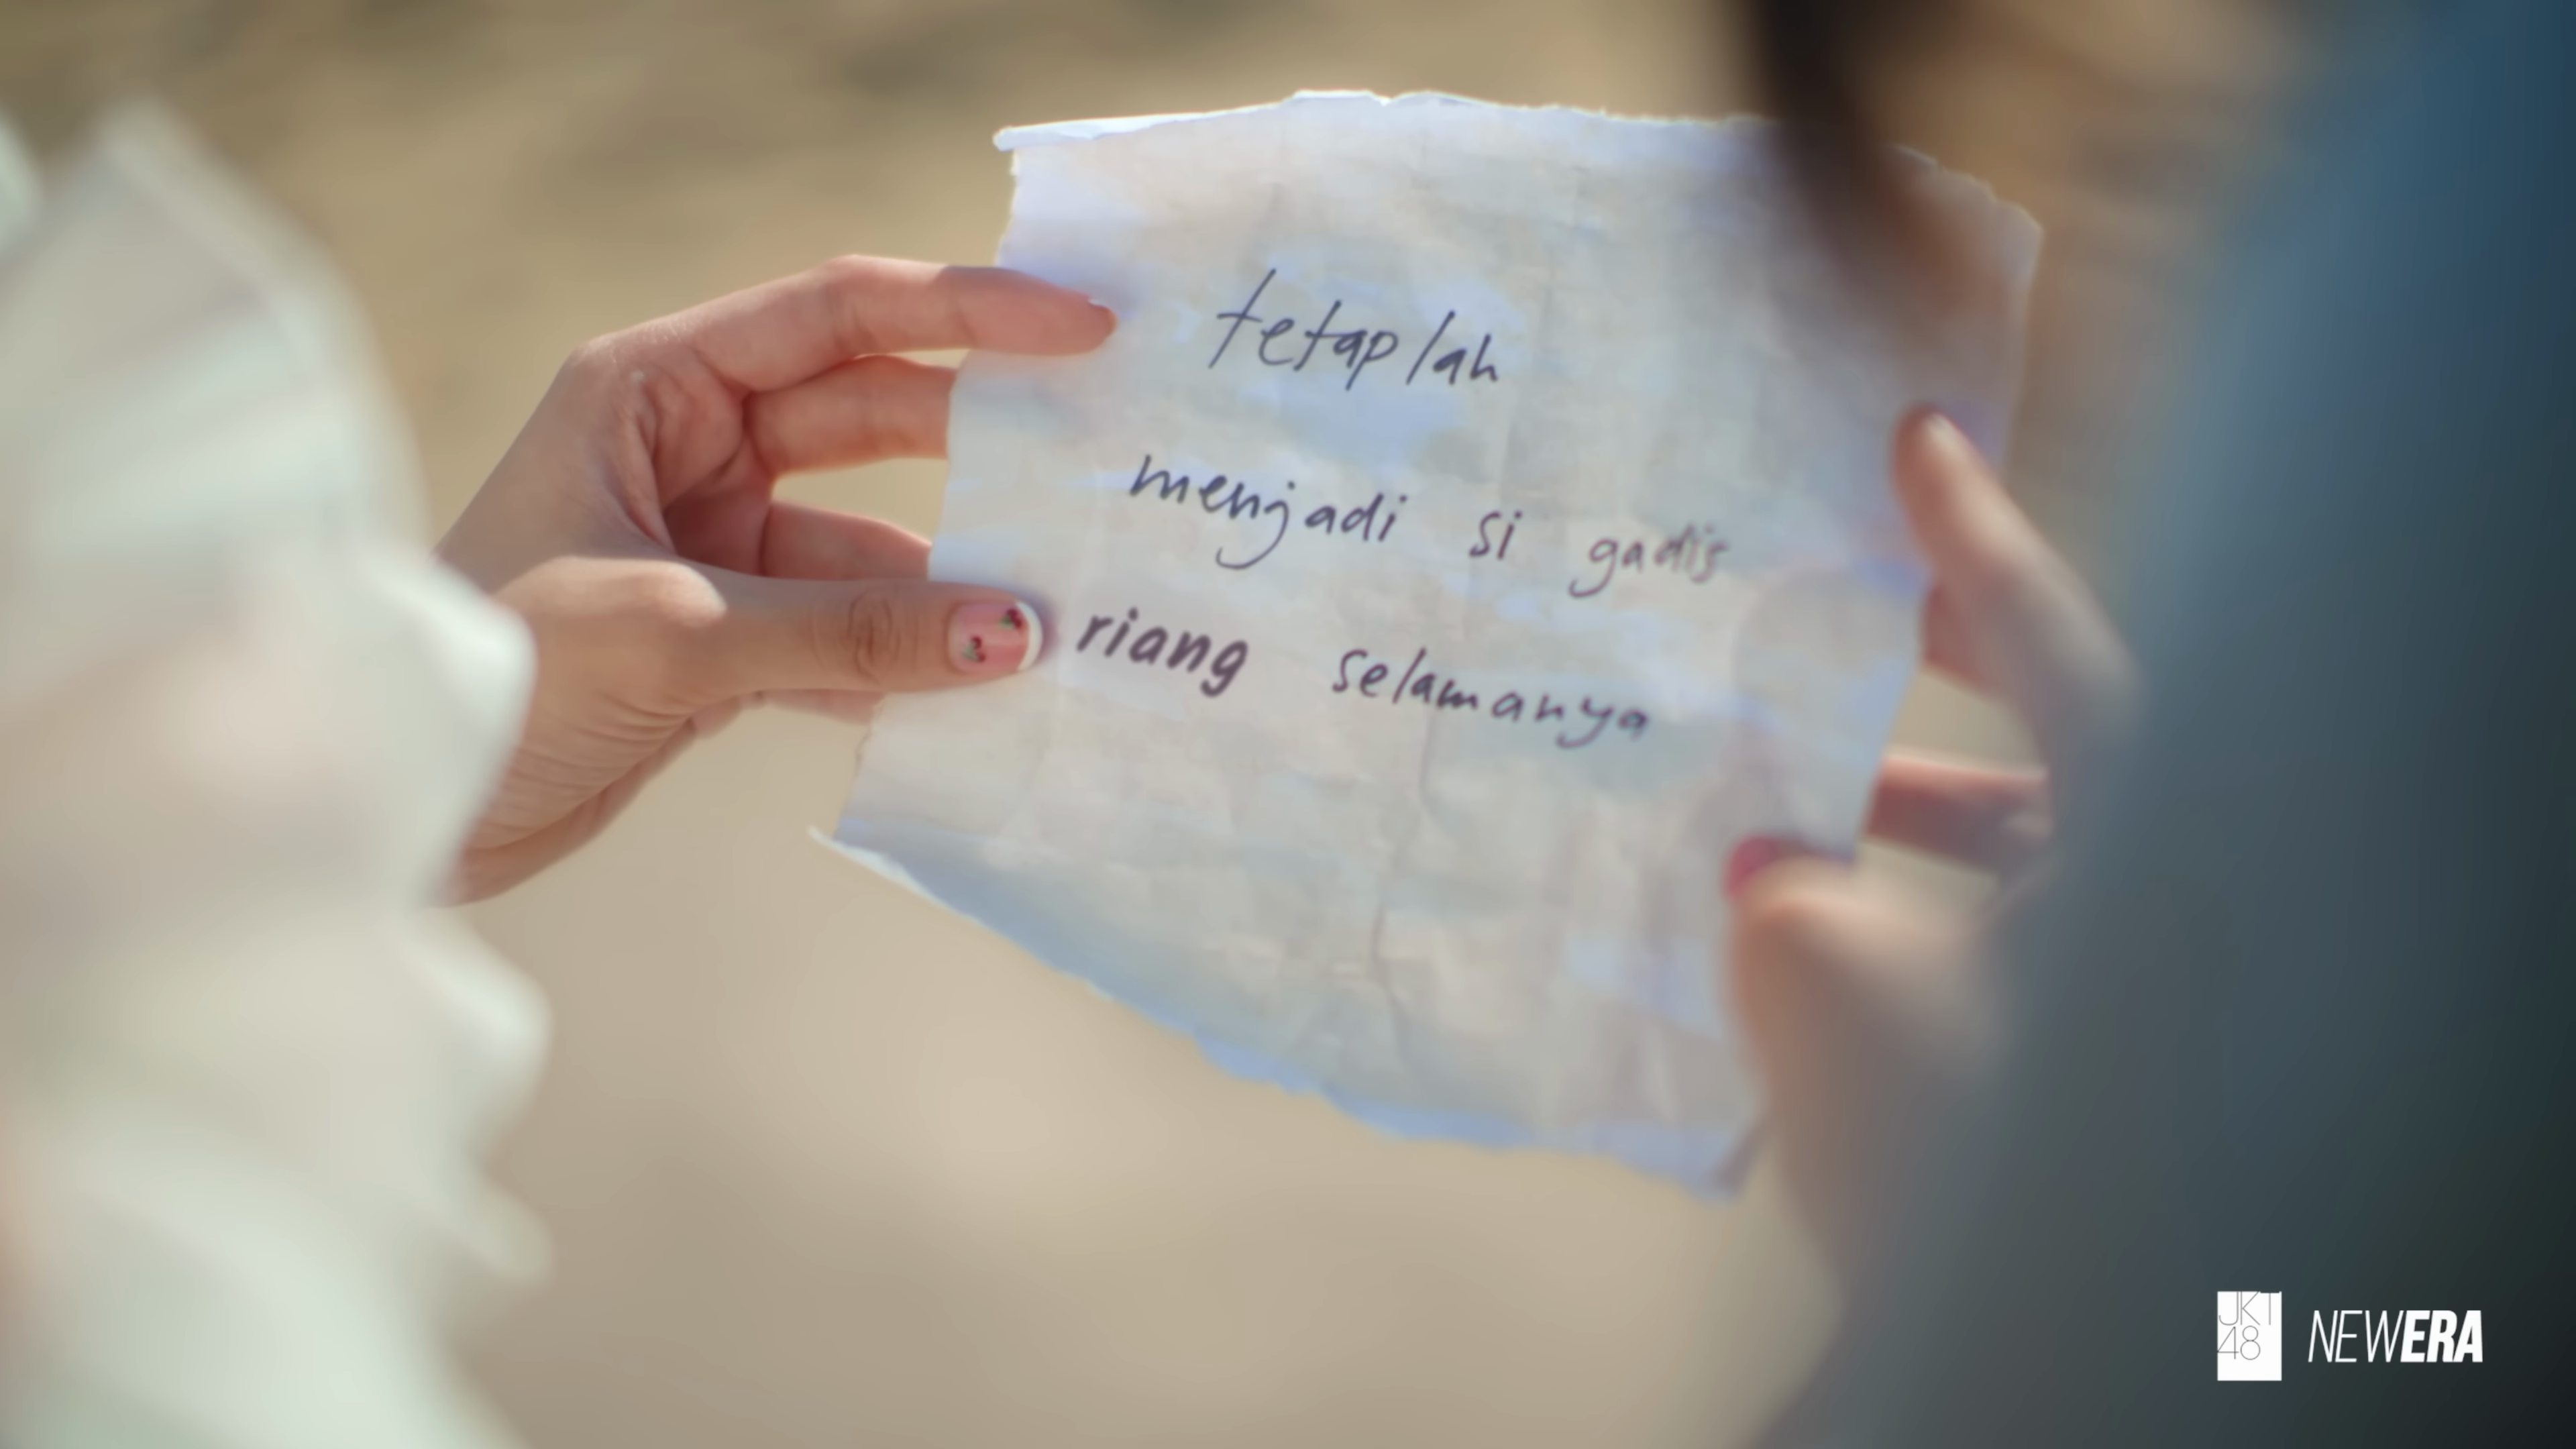 tetaplah
menjadi si gadis
riang selamanya
JKT
48
NEWERA